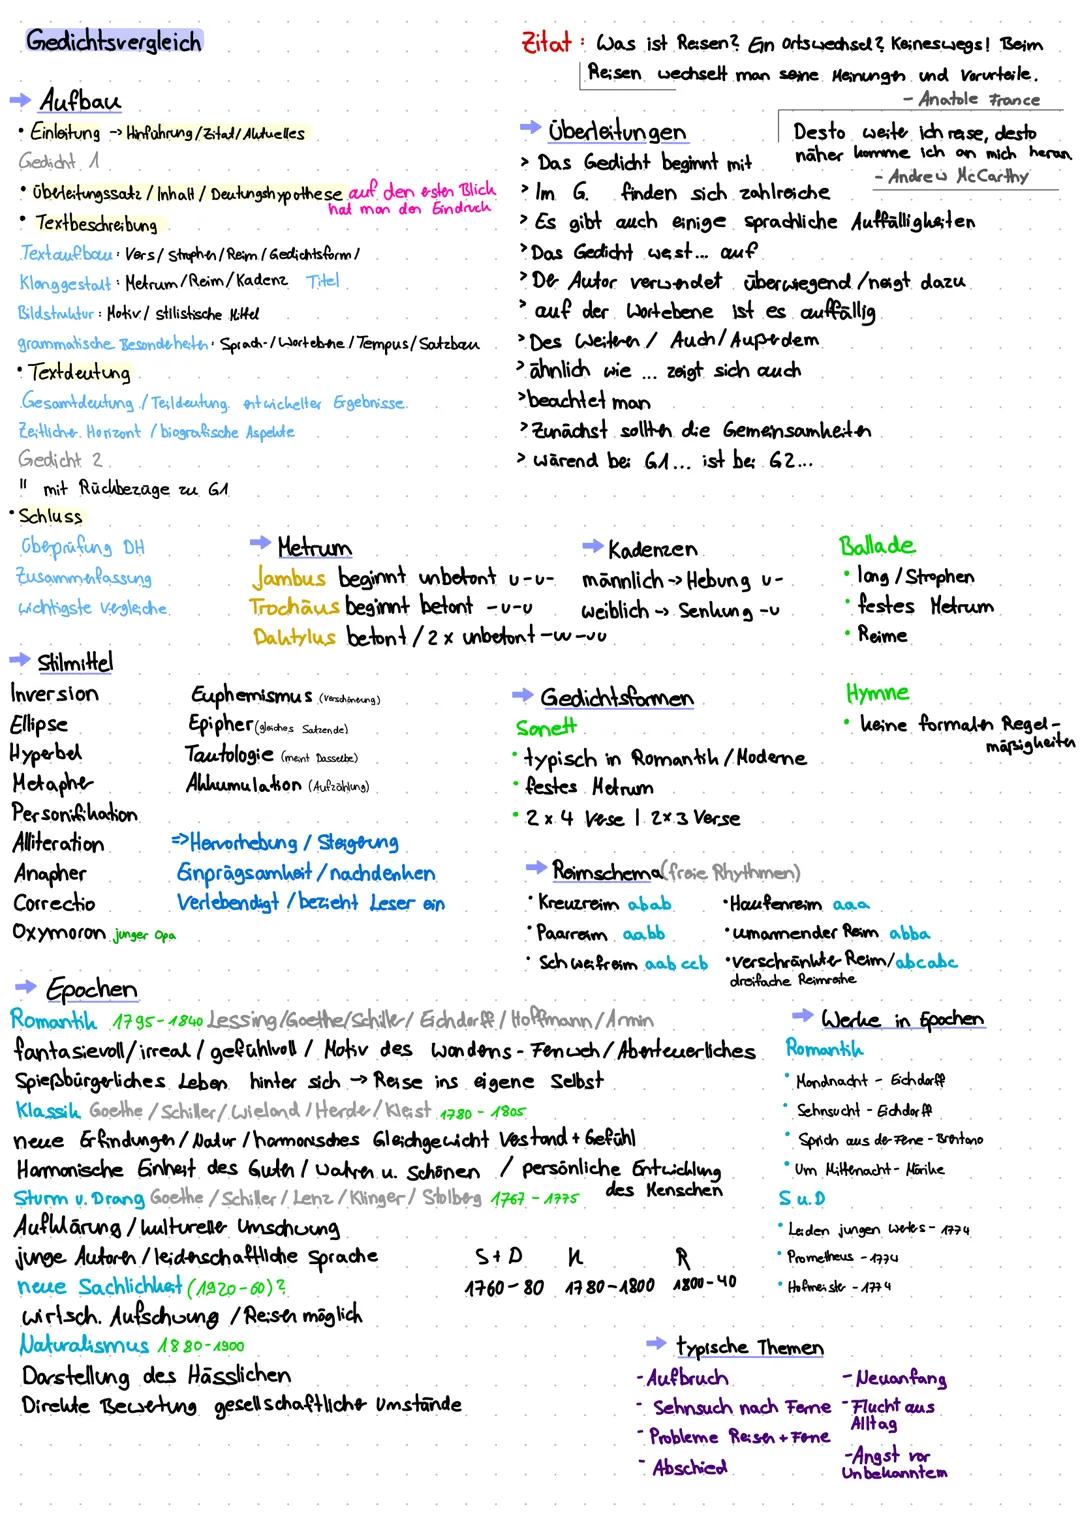 Gedichtsvergleich
Zitat: Was ist Reisen? Ein Ortswechsel? Keineswegs! Beim
Reisen wechselt man seine Meinungen und Vorurteile.
- Anatole France
Desto weite ich reise, desto
näher komme ich an mich heran
- Andrew McCarthy
→ Aufbau
• Einleitung -> Hinführung/Zitat/Aktuelles
Gedicht 1
• Überleitungssatz / Inhalt / Deutungshypothese auf den ersten Blick
hat man den Eindruck
• Textbeschreibung
Textaufbau: Vers/ Strophen/Reim/Gedichtsform/
Klanggestalt: Metrum/Reim/Kadenz Titel
Bildstruktur: Motiv/ stilistische Mittel
grammatische Besonderheiten: Sprach-/Wortebene/Tempus/Satzbau
• Textdeutung
Gesamtdeutung / Teildeutung entwickelter Ergebnisse
Zeitlicher Horizont / biografische Aspekte
Gedicht 2
" mit Rückbezüge zu G1
• Schluss
Überprüfung DH
Zusammenfassung
wichtigste Vergleiche
→ Überleitungen
> Das Gedicht beginnt mit
> Im G. finden sich zahlreiche
> Es gibt auch einige sprachliche Auffälligkeiten
> Das Gedicht weist... auf
> Der Autor verwendet überwiegend /neigt dazu
> auf der Wortebene ist es auffällig
> Des Weiteren / Auch/Außerdem
> ähnlich wie ... zeigt sich auch
> beachtet man
> Zunächst sollten die Gemeinsamkeiten
> wärend bei G1... ist bei G2...
→ Metrum
Jambus beginnt unbetont u-u-
Trochäus beginnt betont -u-u
Daktylus betont / 2x unbetont -uu-uu
→ Kadenzen
männlich -> Hebung u-
weiblich -> Senkung -u
Ballade
• lang / Strophen
• festes Metrum
• Reime
Hymne
• keine formalen Regel-
mäßigkeiten
→ Stilmittel
Inversion
Ellipse
Hyperbel
Metapher
Personifikation
Alliteration
Anapher
Correctio
Oxymoron junger Opa
Euphemismus (Verschönerung)
Epipher (gleiches Satzende)
Tautologie (meint Dasselbe)
Akkumulation (Aufzählung)
=> Hervorhebung / Steigerung
Einprägsamkeit / nachdenken
Verlebendigt / bezieht Leser ein
→ Gedichtsformen
Sonett
• typisch in Romantik / Moderne
• festes Metrum
• 2x4 Verse | 2x3 Verse
→ Reimschema (freie Rhythmen)
• Kreuzreim abab
• Paarreim aabb
• Schweifreim aab ccb
• Haufenreim aaa
• umarmender Reim abba
• verschränkter Reim/abcabc
dreifache Reimreihe
→ Epochen
Romantik 1795-1840 Lessing/Goethe/Schiller/ Eichdorff / Hoffmann/Arnin
fantasievoll/irreal / gefühlvoll / Motiv des Wanderns - Fernweh/ Abenteuerliches
Spießbürgerliches Leben hinter sich -> Reise ins eigene Selbst
Klassik Goethe / Schiller/ Wieland / Herder/ Kleist 1780 - 1805
neue Erfindungen/Natur/harmonisches Gleichgewicht Verstand + Gefühl
Harmonische Einheit des Guten / Wahren u. Schönen / persönliche Entwicklung
des Menschen
Sturm u. Drang Goethe / Schiller / Lenz / Klinger/ Stolberg 1767 - 1775
Aufklärung / kultureller Umschwung
junge Autoren / leidenschaftliche Sprache
neue Sachlichkeit (1920-60)?
wirtsch. Aufschwung / Reisen möglich
Naturalismus 1880-1900
Darstellung des Hässlichen
Direkte Bewertung gesellschaftlicher Umstände
S+D K R
1760-80 1780-1800 1800-40
→ Werke in Epochen
Romantik
• Mondnacht - Eichdorff
• Sehnsucht - Eichdorff
• Sprich aus der Ferne - Brentano
• Um Mitternacht - Mörike
S u.D
• Leiden jungen Werters - 1774
• Prometheus - 1774
• Hofmeister - 1774
→ typische Themen
- Aufbruch
- Sehnsuch nach Ferne
- Probleme Reisen + Ferne
- Abschied
- Neuanfang
- Flucht aus
Alltag
- Angst vor
Unbekanntem